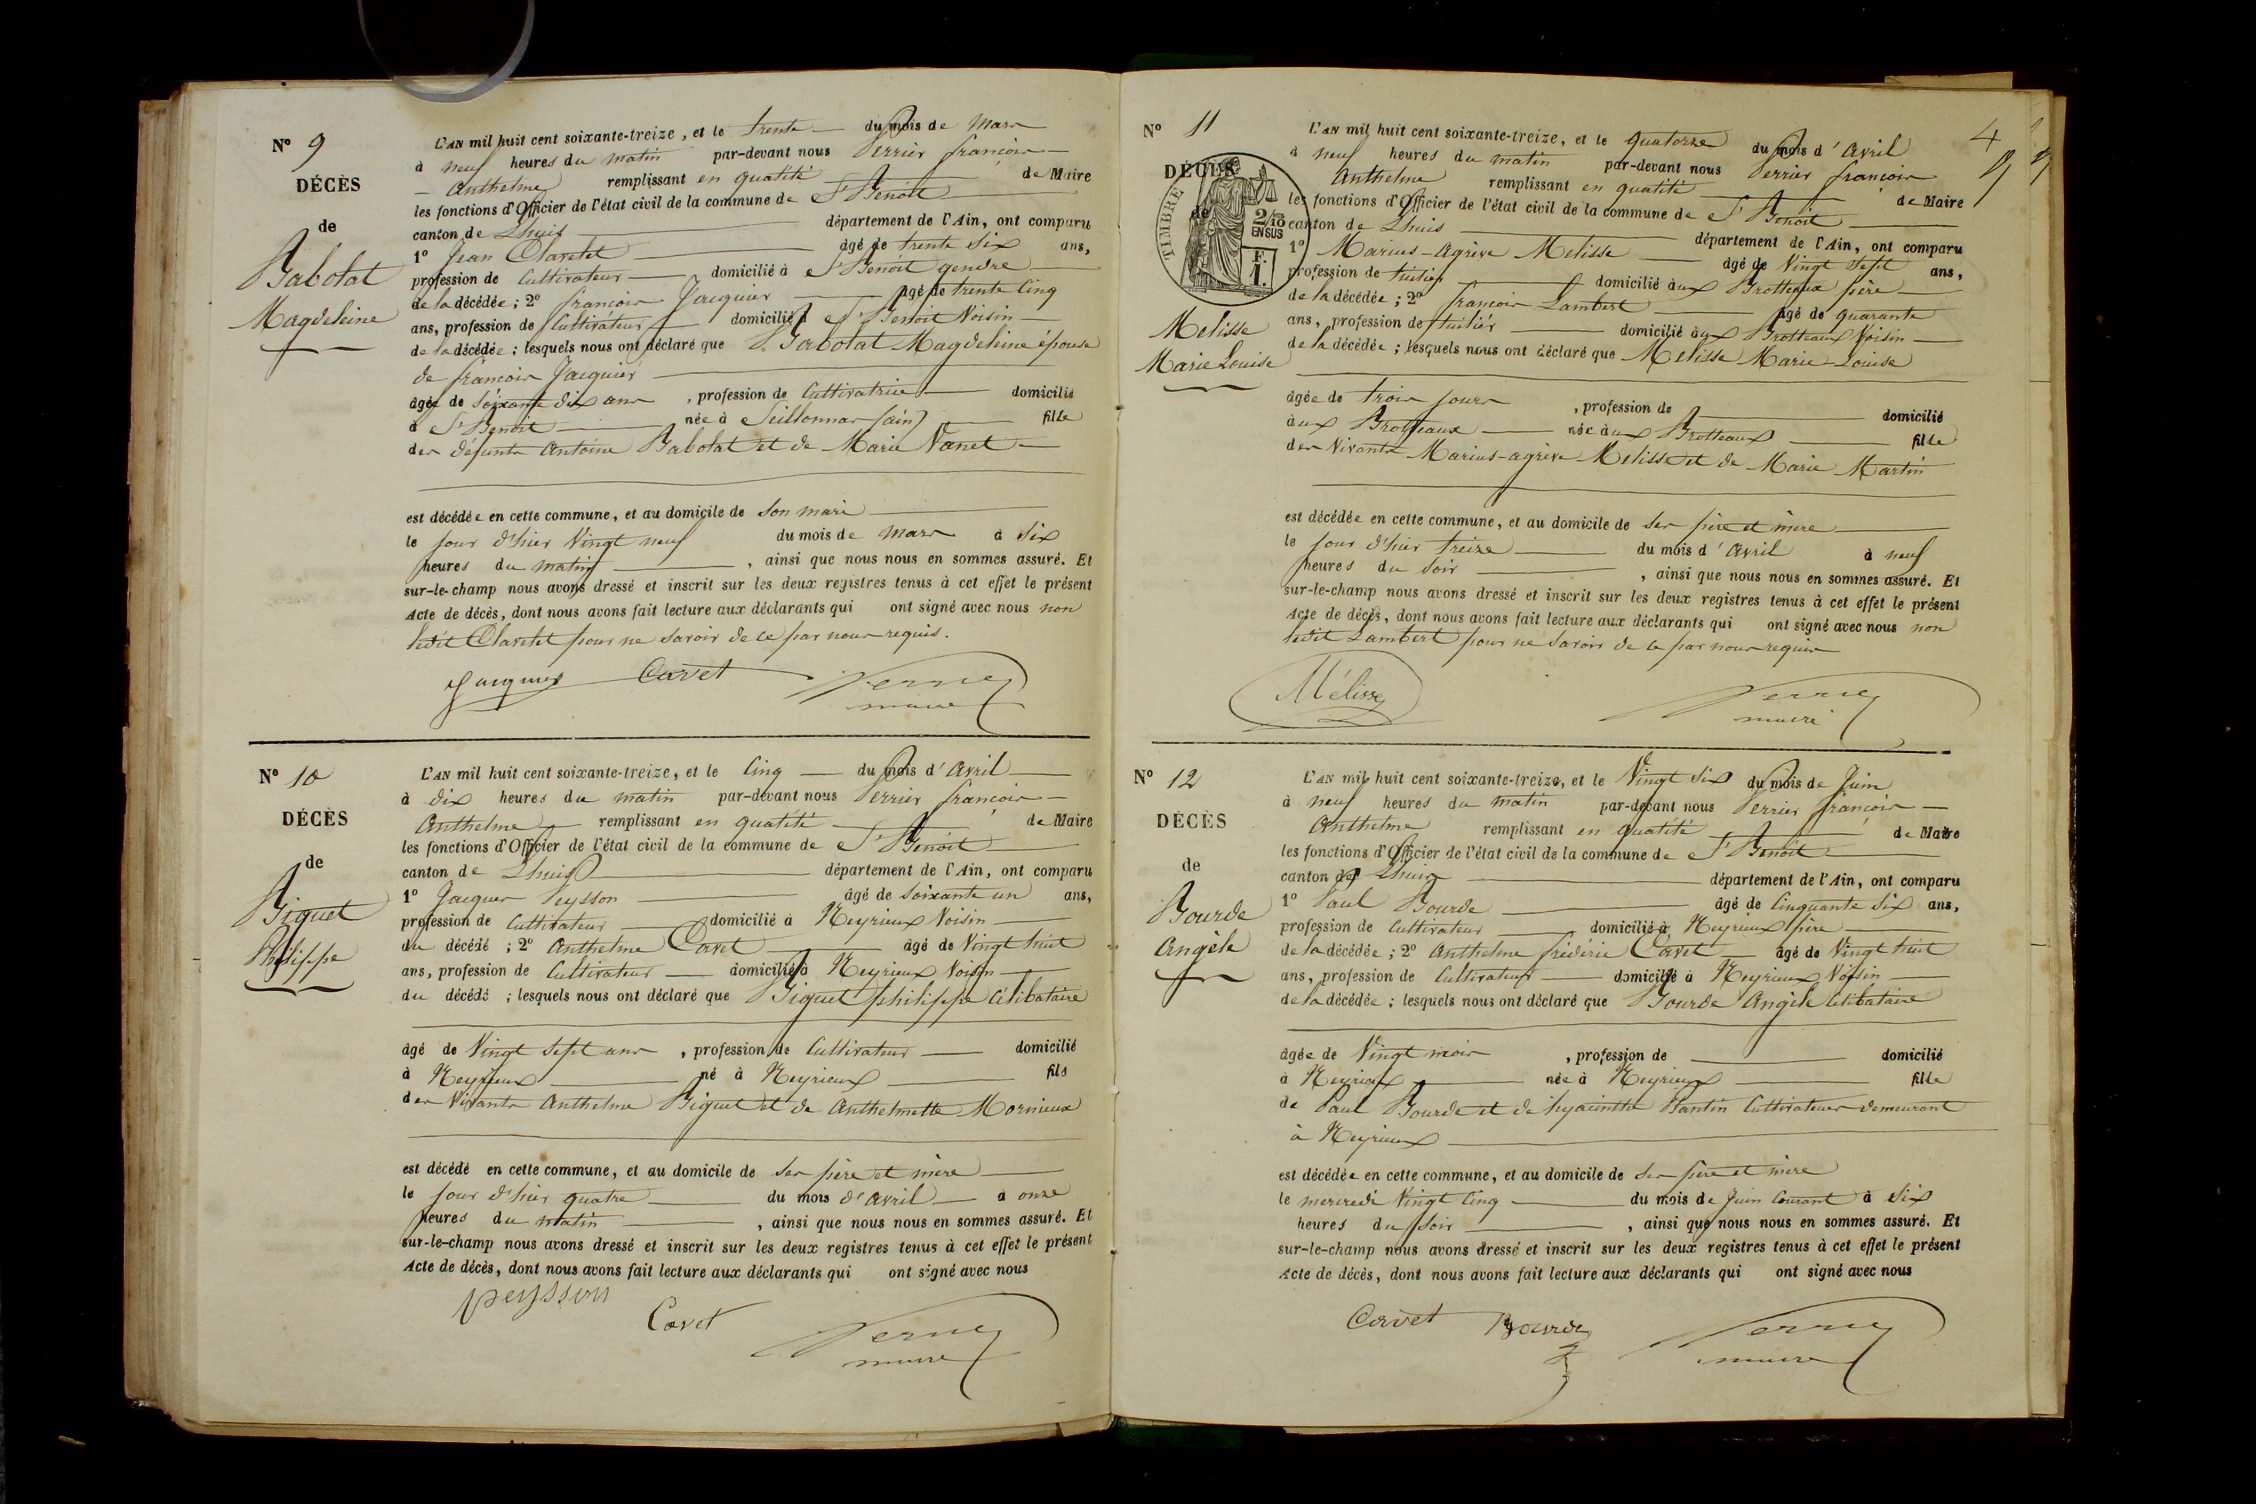 N° 9
DÉCÈS
de
Babolat
Magdeleine
L'AN mil huit cent soixante-treize, et le trente du mois de Mars
à neuf heures du matin par-devant nous Perrier françois
Anthelme remplissant en qualité de Maire
les fonctions d'Officier de l'état civil de la commune de St Benoit
canton de Lhuis département de l'Ain, ont comparu
1° Jean Claretet âgé de trente six ans,
profession de Cultivateur domicilié à St Benoit gendre
de la décédée; 2° françois Jacquier âgé de trente cinq
ans, profession de Cultivateur domicilié à St Benoit Voisin
de la décédée; lesquels nous ont déclaré que Babolat Magdeleine épouse
de françois Jacquier
âgée de soixante dix ans, profession de Cultivatrice domicilié
à St Benoit née à Seillonnas (ain) fille
des défunts Antoine Babolat et de Marie Vanet
est décédée en cette commune, et au domicile de son mari
le jour d'hier Vingt neuf du mois de Mars à six
heures du matin, ainsi que nous nous en sommes assuré. Et
sur-le-champ nous avons dressé et inscrit sur les deux registres tenus à cet effet le présent
Acte de décès, dont nous avons fait lecture aux déclarants qui ont signé avec nous non
ledit Claretet pour ne savoir de ce par nous requis.
Jacquier Cavet Perrier
maire
N° 10
DÉCÈS
de
Biguet
Philippe
L'AN mil huit cent soixante-treize, et le Cinq du mois d'Avril
à dix heures du matin par-devant nous Perrier françois
Anthelme remplissant en qualité de Maire
les fonctions d'Officier de l'état civil de la commune de St Benoit
canton de Lhuis département de l'Ain, ont comparu
1° Jacques Peysson âgé de soixante un ans,
profession de Cultivateur domicilié à Meyrieux Voisin
du décédé; 2° Anthelme Cavet âgé de Vingt huit
ans, profession de Cultivateur domicilié à Meyrieux Voisin
du décédé; lesquels nous ont déclaré que Biguet philippe Célibataire
âgé de Vingt sept ans, profession de Cultivateur domicilié
à Meyrieux né à Meyrieux fils
des Vivants Anthelme Biguet et de Anthelmette Mornieux
est décédé en cette commune, et au domicile de ses père et mère
le jour d'hier quatre du mois d'Avril à onze
heures du matin, ainsi que nous nous en sommes assuré. Et
sur-le-champ nous avons dressé et inscrit sur les deux registres tenus à cet effet le présent
Acte de décès, dont nous avons fait lecture aux déclarants qui ont signé avec nous
peysson Cavet Perrier
maire
4
N° 11
DÉCÈS
de
TIMBRE
2/10
EN SUS
F.
1.
Melisse
Marie Louise
L'AN mil huit cent soixante-treize, et le quatorze du mois d'Avril
à neuf heures du matin par-devant nous Perrier françois
Anthelme remplissant en qualité de Maire
les fonctions d'Officier de l'état civil de la commune de St Benoit
canton de Lhuis département de l'Ain, ont comparu
1° Marius-agrève Melisse âgé de Vingt sept ans,
profession de tuilier domicilié aux Brotteaux père
de la décédée; 2° françois Lambert âgé de quarante
ans, profession de tuilier domicilié aux Brotteaux Voisin
de la décédée; lesquels nous ont déclaré que Melisse Marie-Louise
âgée de trois jours, profession de domicilié
aux Brotteaux née aux Brotteaux fille
des Vivants Marius-agrève Melisse et de Marie Martin
est décédée en cette commune, et au domicile de ses père et mère
le jour d'hier treize du mois d'Avril à neuf
heures du soir, ainsi que nous nous en sommes assuré. Et
sur-le-champ nous avons dressé et inscrit sur les deux registres tenus à cet effet le présent
Acte de décès, dont nous avons fait lecture aux déclarants qui ont signé avec nous non
ledit Lambert pour ne savoir de ce par nous requis
Mélisse Perrier
maire
N° 12
DÉCÈS
de
Bourde
Angèle
L'AN mil huit cent soixante-treize, et le Vingt six du mois de Juin
à neuf heures du matin par-devant nous Perrier françois
Anthelme remplissant en qualité de Maire
les fonctions d'Officier de l'état civil de la commune de St Benoit
canton de Lhuis département de l'Ain, ont comparu
1° Paul Bourde âgé de Cinquante six ans,
profession de Cultivateur domicilié à Meyrieux père
de la décédée; 2° Anthelme frédéric Cavet âgé de Vingt huit
ans, profession de Cultivateur domicilié à Meyrieux Voisin
de la décédée; lesquels nous ont déclaré que Bourde Angèle Célibataire
âgée de Vingt mois, profession de domicilié
à Meyrieux née à Meyrieux fille
de Paul Bourde et de hyacinthe Pantin Cultivateurs demeurant
à Meyrieux
est décédée en cette commune, et au domicile de ses père et mère
le mercredi Vingt Cinq du mois de Juin Courant à six
heures du soir, ainsi que nous nous en sommes assuré. Et
sur-le-champ nous avons dressé et inscrit sur les deux registres tenus à cet effet le présent
Acte de décès, dont nous avons fait lecture aux déclarants qui ont signé avec nous
Cavet Bourde Perrier
maire